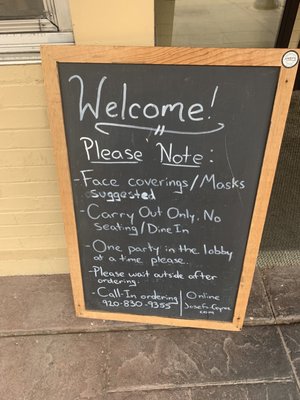 Welcome!
Please Note:
- Face coverings/Masks
suggested
- Carry Out Only. No
Seating/Dine In
- One party in the lobby
at a time please.
- Please wait outside after
ordering.
- Call-In ordering
920-830-9355
Online
.com